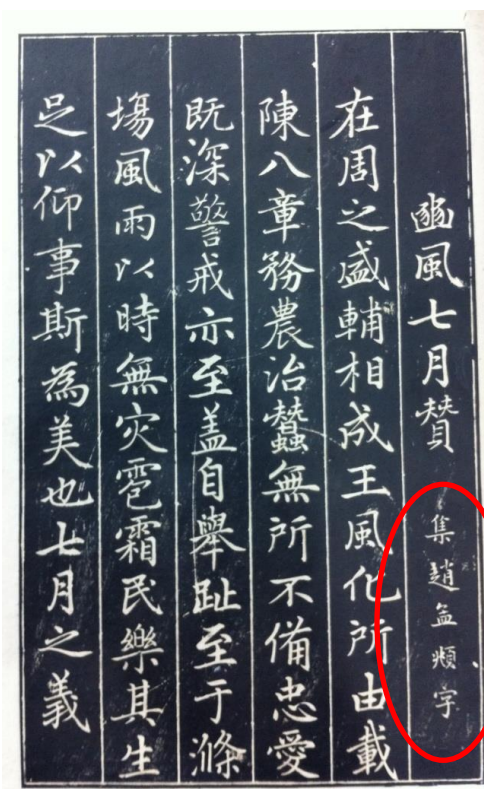 豳風七月贊 集趙孟頫字
在周之盛輔相成王風化所由載
陳八章務農治蠶無所不備忠愛
既深警戒亦至蓋自舉趾至于滌
場風雨以時無灾雹霜民樂其生
足以仰事斯為美也七月之義